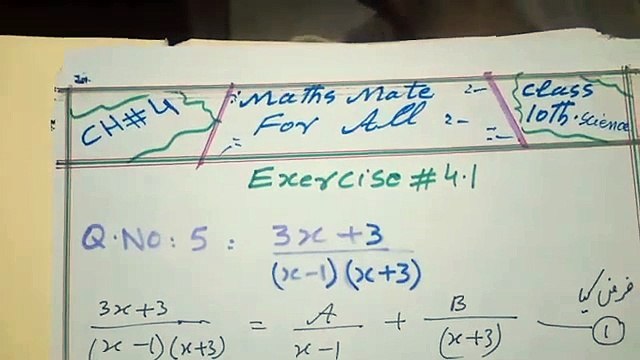 CH#4
:Maths Mate :-
For All :-
Class
10th.Science
Exercise #4.1
Q.No: 5: 3x+3/(x-1)(x+3)
فرض کیا
3x+3/(x-1)(x+3) = A/x-1 + B/(x+3) — ①